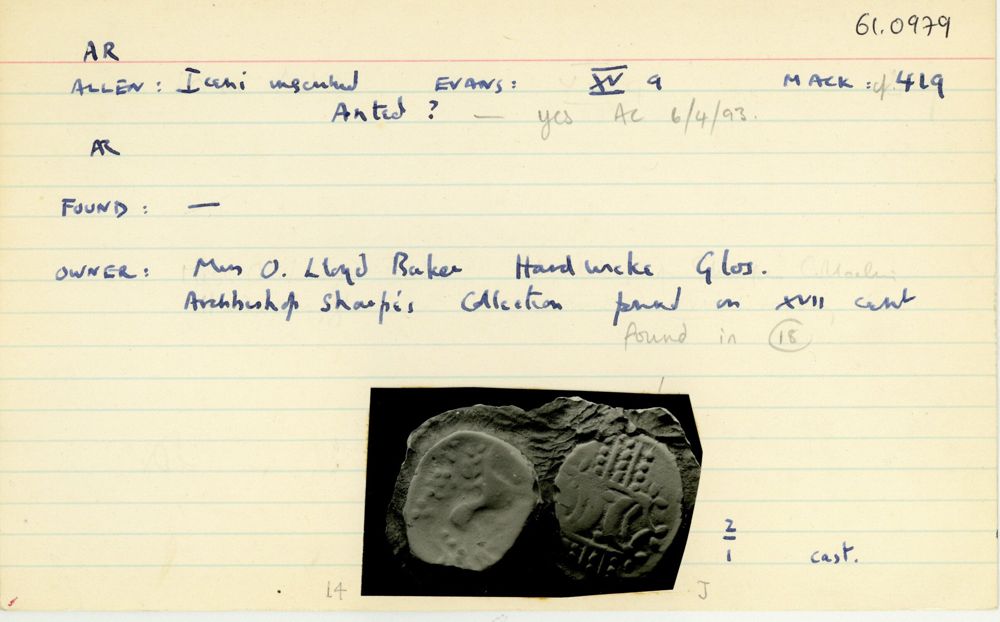 61.0979
AR
ALLEN: Iceni inscribed EVANS: XV 9 MACK: cf. 419
Anted? — yes AC 6/4/93.
AR
FOUND: —
OWNER: Mrs O. Lloyd Baker Hardwicke Glos.
Archbishop Sharpe's Collection found in XVII cent
found in 18
2
1 cast.
14 J